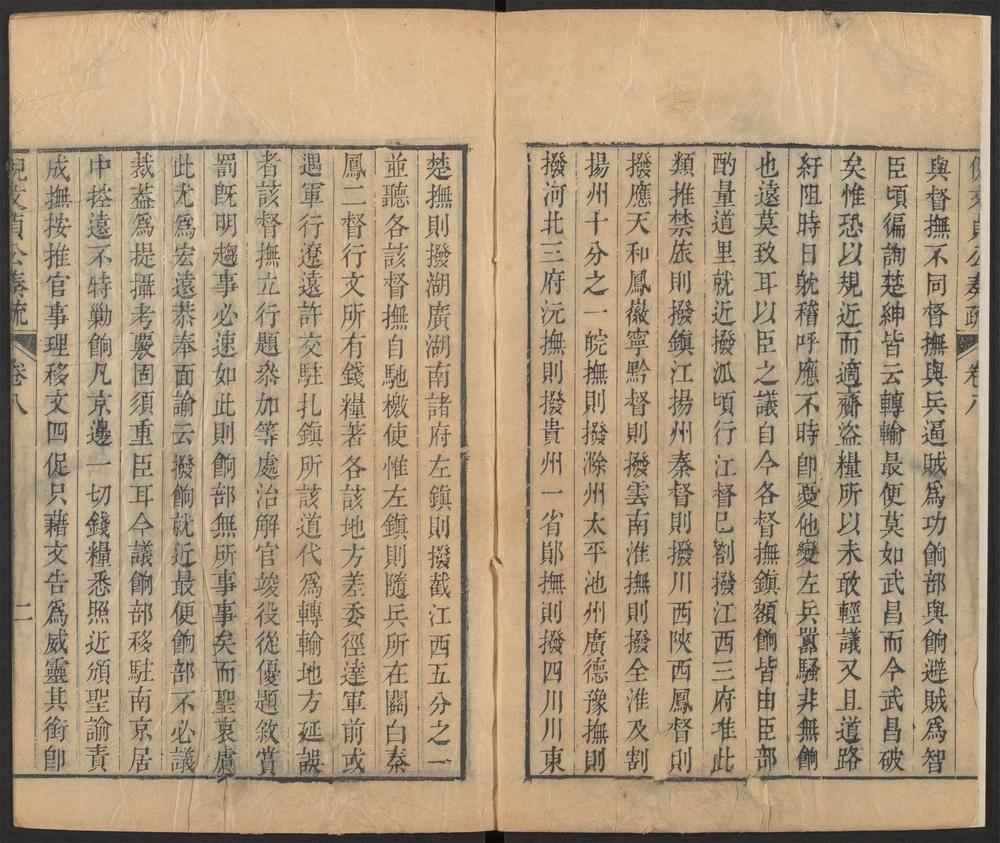 倪文貞公奏疏 卷八
與督撫不同督撫與兵逼賊爲功餉部與餉避賊爲智
臣頃徧詢楚紳皆云轉輸最便莫如武昌而今武昌破
矣惟恐以規近而適齎盜糧所以未敢輕議又且道路
紆阻時日躭稽呼應不時卽憂他變左兵囂騷非無餉
也遠莫致耳以臣之議自今各督撫鎮額餉皆由臣部
酌量道里就近撥派頃行江督已劄撥江西三府准此
類推禁旅則撥鎮江揚州秦督則撥川西陝西鳳督則
撥應天和鳳徽寧黔督則撥雲南淮撫則撥全淮及割
揚州十分之一皖撫則撥滁州太平池州廣德豫撫則
撥河北三府沅撫則撥貴州一省鄖撫則撥四川川東
楚撫則撥湖廣湖南諸府左鎮則撥截江西五分之一
並聽各該督撫自馳檄使惟左鎮則隨兵所在關白秦
鳳二督行文所有錢糧著各該地方差委徑達軍前或
遇軍行遼遠許交駐扎鎮所該道代爲轉輸地方延誤
者該督撫立行題叅加等處治解官竣役從優題敘賞
罰旣明趨事必速如此則餉部無所事事矣而聖衷慮
此尤爲宏遠恭奉面諭云撥餉就近最便餉部不必議
裁葢爲提攝考覈固須重臣耳今議餉部移駐南京居
中控遠不特勦餉凡京邊一切錢糧悉照近頒聖諭責
成撫按推官事理移文四促只藉文告爲威靈其銜卽
倪文貞公奏疏 卷八 二